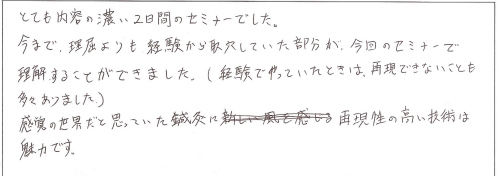 とても内容の濃い2日間のセミナーでした。
今まで、理屈よりも経験から取穴していた部分が、今回のセミナーで
理解することができました。(経験でやっていたときは、再現できないことも
多々ありました)
感覚の世界だと思っていた鍼灸に新しい風を感じる再現性の高い技術は
魅力です。